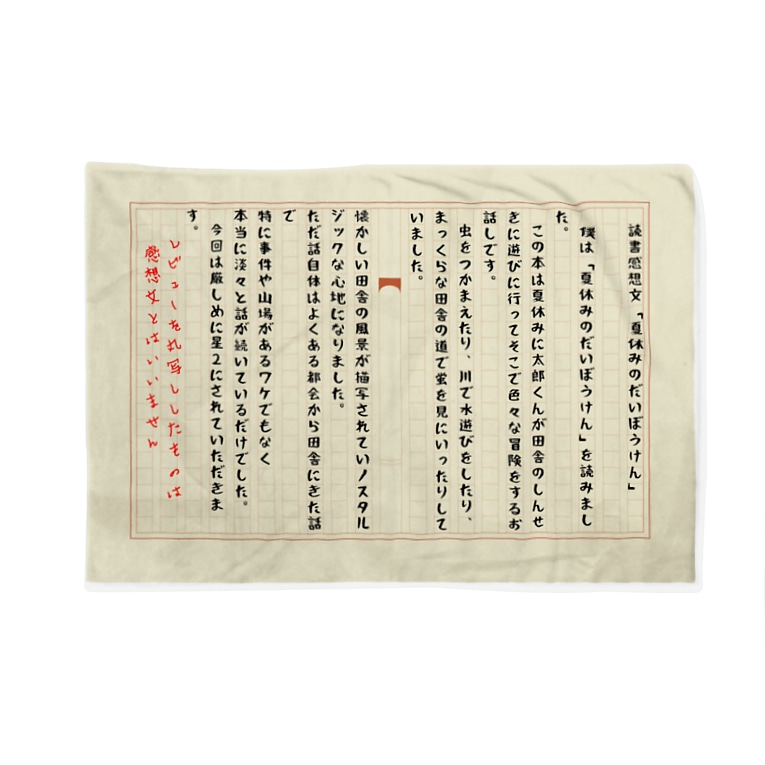 読書感想文「夏休みのだいぼうけん」
僕は「夏休みのだいぼうけん」を読みまし
た。
この本は夏休みに太郎くんが田舎のしんせ
きに遊びに行ってそこで色々な冒険をするお
話しです。
虫をつかまえたり、川で水遊びをしたり、
まっくらな田舎の道で蛍を見にいったりして
いました。
懐かしい田舎の風景が描写されていノスタル
ジックな心地になりました。
ただ話自体はよくある都会から田舎にきた話
で
特に事件や山場があるワケでもなく
本当に淡々と話が続いているだけでした。
今回は厳しめに星2にされていただきま
す。
レビューを丸写ししたものは
感想文とはいいません